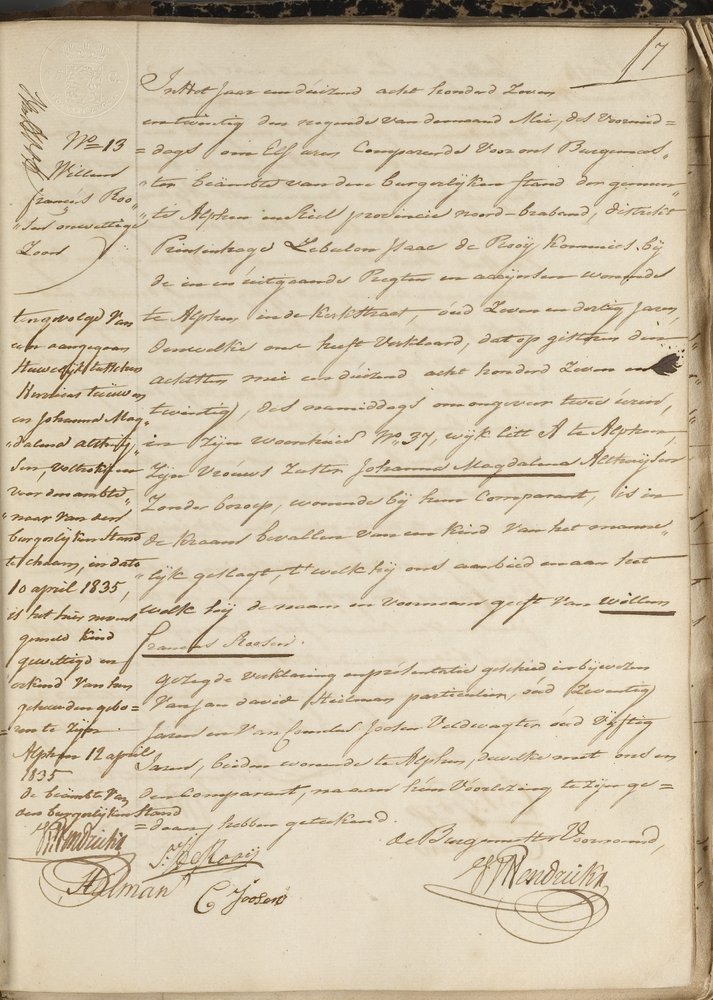 7
No 13
Willem
francis Roo=
"sen onwettige
Zoon
In Het Jaar eenduizend acht honderd Zeven
entwintig den negende van de maand Mei, des Voormid=
=dags om Elf uren Compareerde Voor ons Burgemees=
"ter beämbte van den burgerlijken Stand der gemeen"
"te Alphen en Riel provincie noord-braband, district
Prinsenhage Zebulon Isaac de Rooij Kommies bij
de in en uitgaande Regten en accijnsen woonende
te Alphen in de Kerkstraat, óud Zeven en dertig Jaren,
Dewelke ons heeft Verklaard, dat op gisteren den
achtsten mei eenduizend acht honderd Zeven en
twintig, des namiddags om ongeveer twee uren,
in Zijn woonhuis No 37, wijk Litt A te Alphen,
Zijn Vrouws Zuster Johanna Magdalena Althuijsen
Zonder beroep, woonende bij hem Comparant, is in
de Kraam bevallen van een Kind Van het manne"
"lijk geslagt, 't welk hij ons aanbied en aan het
welk hij de naam en Voornaam geeft Van Willem
francis Roosen.
gezegde verklaring en présentatie geschied in bijwezen
Van Jan david Heilman particulier, óud Zeventig
Jaren en Van Cornelis Joosen Veldwagter óud Vijftig
Jaren, beiden woonende te Alphen, dewelke met ons en
den Comparant, na aan hún Voorlezing te Zijn ge=
=daan, hebben getekend.
de Burgemeester Voornoemd,
ten gevolge Van
een aangegaan
Huwelijk tusschen
en Johanna Mag
"dalena althuij
"sen, voltrokken
voor den ambte"
"naar Van den
burgerlijken Stand
te chaam, in dato
10 april 1835,
is het hier neven
gemeld Kind
gewettigd en
erkend Van hun
gehuwden gebo=
=ren te Zijn.
Alphen 12 april
1835
de beämbte Van
den burgerlijken Stand
Hendrickx
Z: I: de Rooij
Heilman
C Joosen
Hendrickx